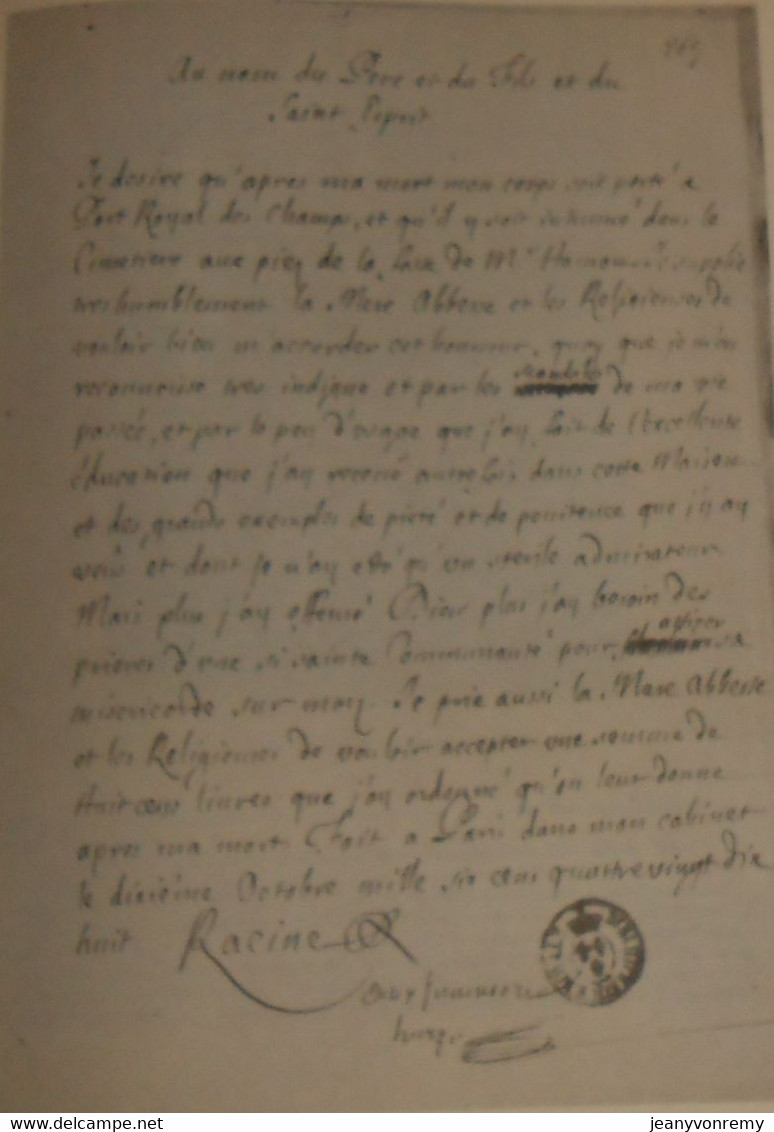 Au nom du Pere et du Fils et du
Saint Esprit
Je desire qu'apres ma mort mon corps soit porté a
Port Royal des Champs, et qu'il y soit inhumé dans le
Cimetiere aux piez de la fosse de Mr Hamon. Je supplie
tres humblement la Mere Abbesse et les Religieuses de
vouloir bien m'accorder cet honneur, quoy que je m'en
reconnoisse tres indigne et par les scandales de ma vie
passée, et par le peu d'usage que j'ay fait de l'Excellente
Education que j'ay receuë autrefois dans cette Maison
et des grands exemples de pieté et de penitence que j'y ay
veûs et dont je n'ay esté qu'un sterile admirateur.
Mais plus j'ay offensé Dieu plus j'ay besoin des
prieres d'une si sainte Communauté pour attirer sa
misericorde sur moy. Je prie aussi la Mere Abbesse
et les Religieuses de vouloir accepter une somme de
Huit cens livres que j'ay ordonné qu'on leur donne
apres ma mort. Fait a Paris dans mon cabinet
le dixiéme Octobre mille six cens quatre vingt dix
huit Racine
jeanyvonremy